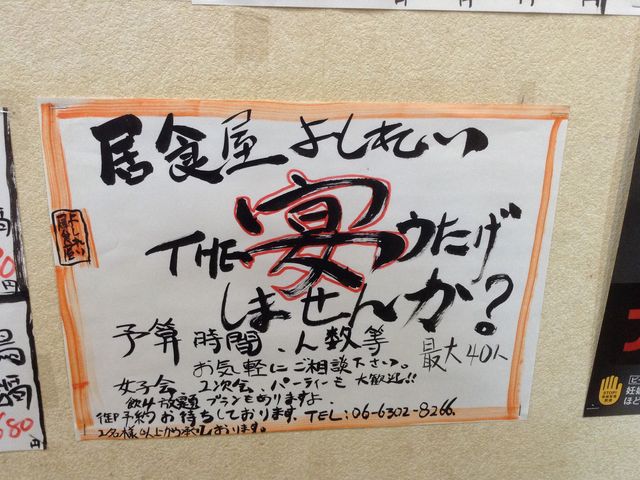 居食屋 よしれい
THE 宴 うたげ
しませんか?
予算 時間、人数等
お気軽に ご相談下さい。
最大40人
女子会、2次会、パーティーも 大歓迎!!
飲み放題 プランもありますよ
御予約お待ちしております。TEL:06-6302-8266.
2名様以上から承しております。
居食屋
よしれい
円
鳥
鍋
680
円
STOP!
妊娠
ほど